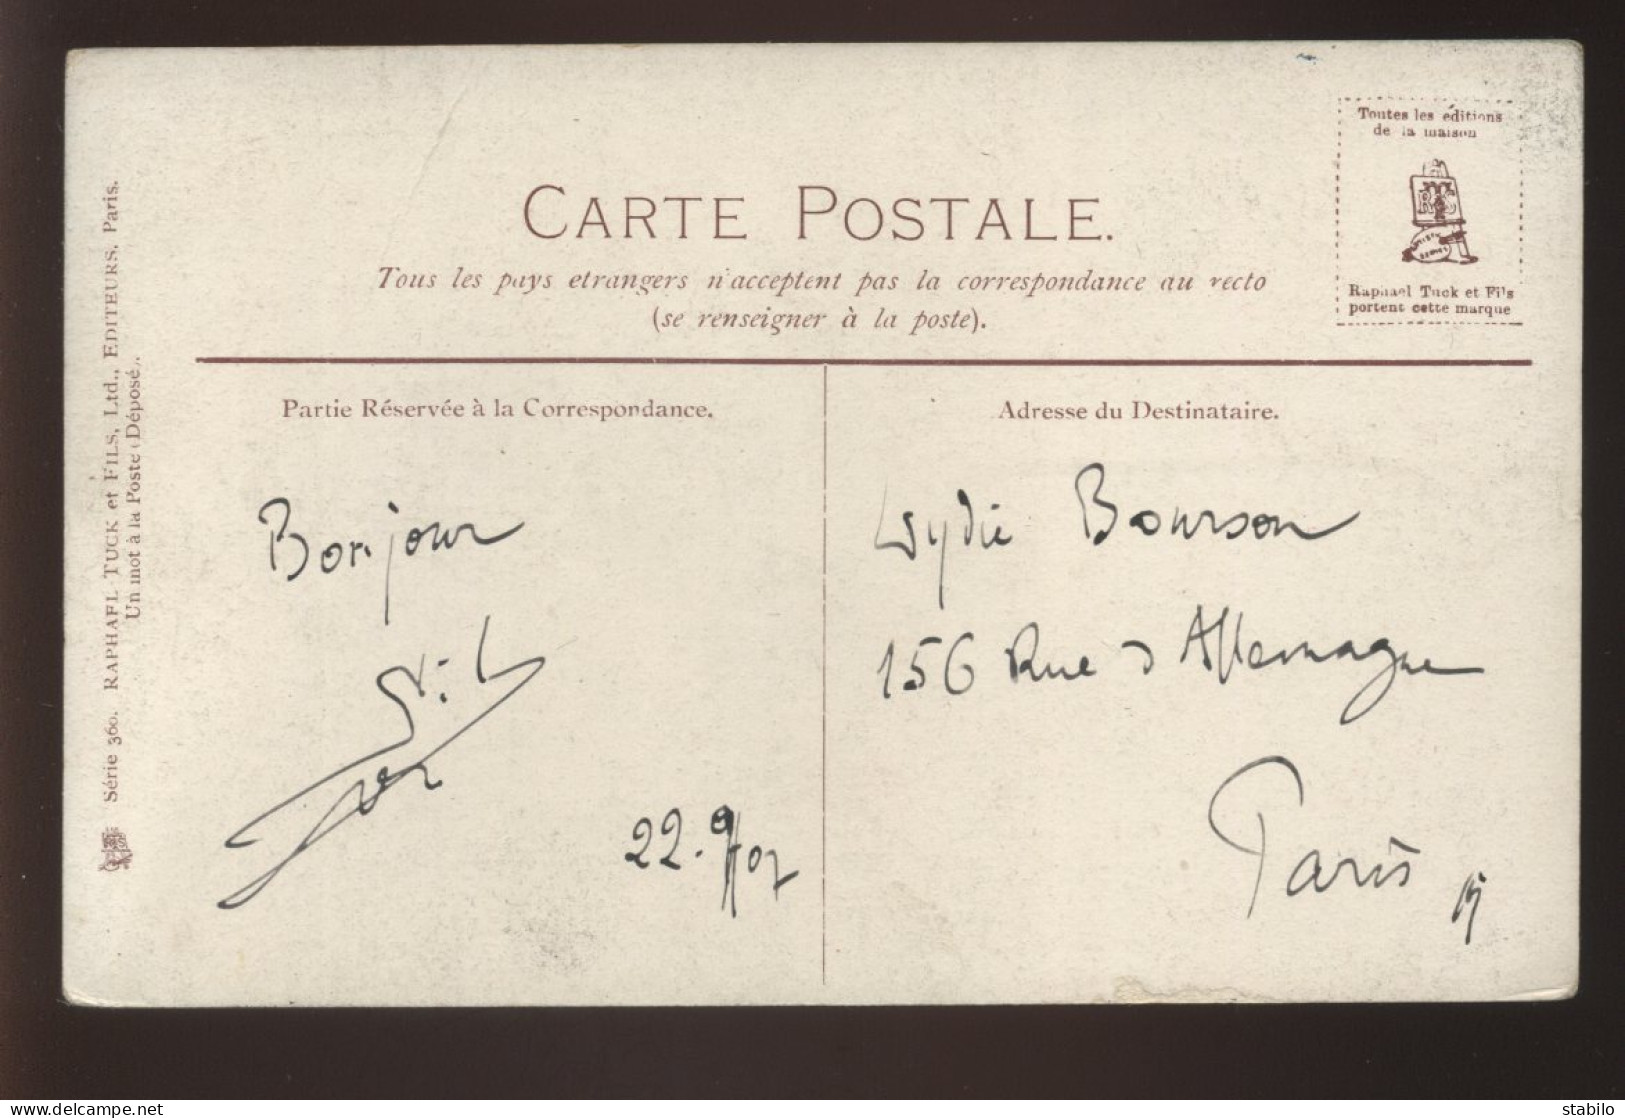 Toutes les éditions
de la maison
Raphael Tuck et Fils
portent cette marque
CARTE POSTALE.
Tous les pays etrangers n'acceptent pas la correspondance au recto
(se renseigner à la poste).
Série 360. RAPHAEL TUCK et FILS, Ltd., EDITEURS, Paris.
Un mot à la Poste (Déposé).
Partie Réservée à la Correspondance.
Bonjour
22.9/07
Adresse du Destinataire.
Lydie Bourson
156 Rue d'Allemagne
Paris
stabilo